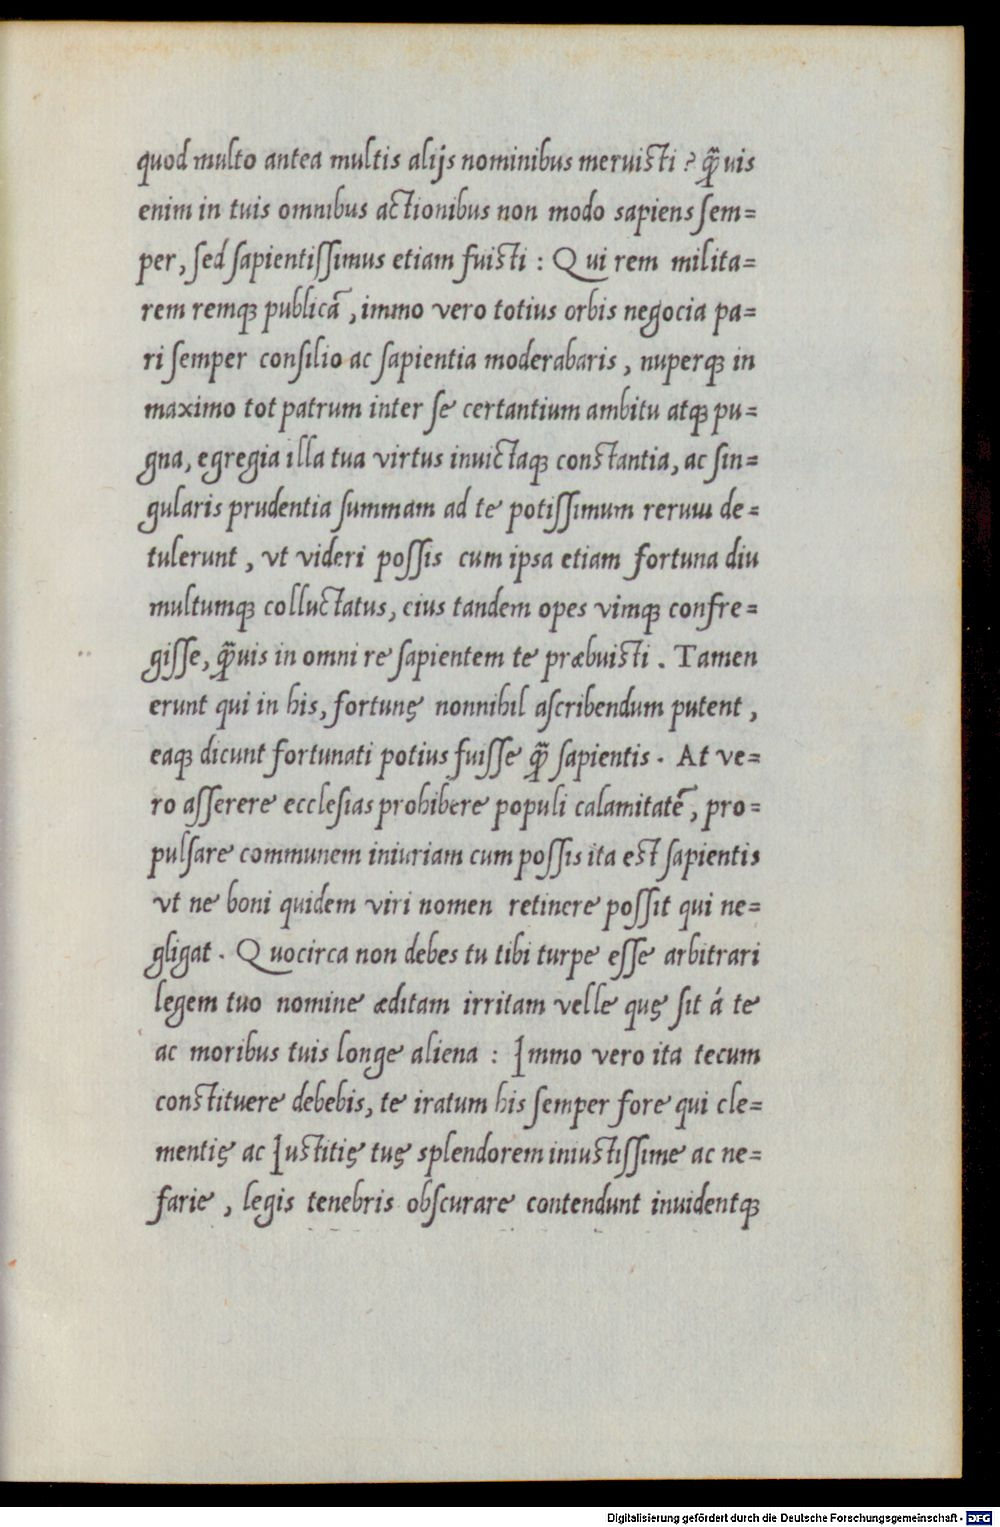 quod multo antea multis alijs nominibus meruisti ? q̃uis
enim in tuis omnibus actionibus non modo sapiens ſem=
per, ſed ſapientiſſimus etiam fuisti : Qui rem milita=
rem remqꝫ publicā, immo vero totius orbis negocia pa=
ri ſemper conſilio ac ſapientia moderabaris, nuperqꝫ in
maximo tot patrum inter ſe certantium ambitu atqꝫ pu=
gna, egregia illa tua virtus inuictaqꝫ constantia, ac ſin=
gularis prudentia ſummam ad te potiſſimum rerum de=
tulerunt, vt videri poſſis cum ipsa etiam fortuna diu
multumqꝫ colluctatus, eius tandem opes vimqꝫ confre=
giſſe, q̃uis in omni re ſapientem te præbuisti. Tamen
erunt qui in his, fortunę nonnihil aſcribendum putent,
eaqꝫ dicunt fortunati potius fuiſſe q̃ ſapientis. At ve=
ro aſſerere eccleſias prohibere populi calamitatē, pro=
pulſare communem iniuriam cum poſſis ita est ſapientis
vt ne boni quidem viri nomen retinere poſſit qui ne=
gligat. Quocirca non debes tu tibi turpe eſſe arbitrari
legem tuo nomine æditam irritam velle quę ſit á te
ac moribus tuis longe aliena : Immo vero ita tecum
constituere debebis, te iratum his ſemper fore qui cle=
mentię ac Iustitię tuę splendorem iniustiſſime ac ne=
farie, legis tenebris obſcurare contendunt inuidentqꝫ
Digitalisierung gefördert durch die Deutsche Forschungsgemeinschaft - DFG